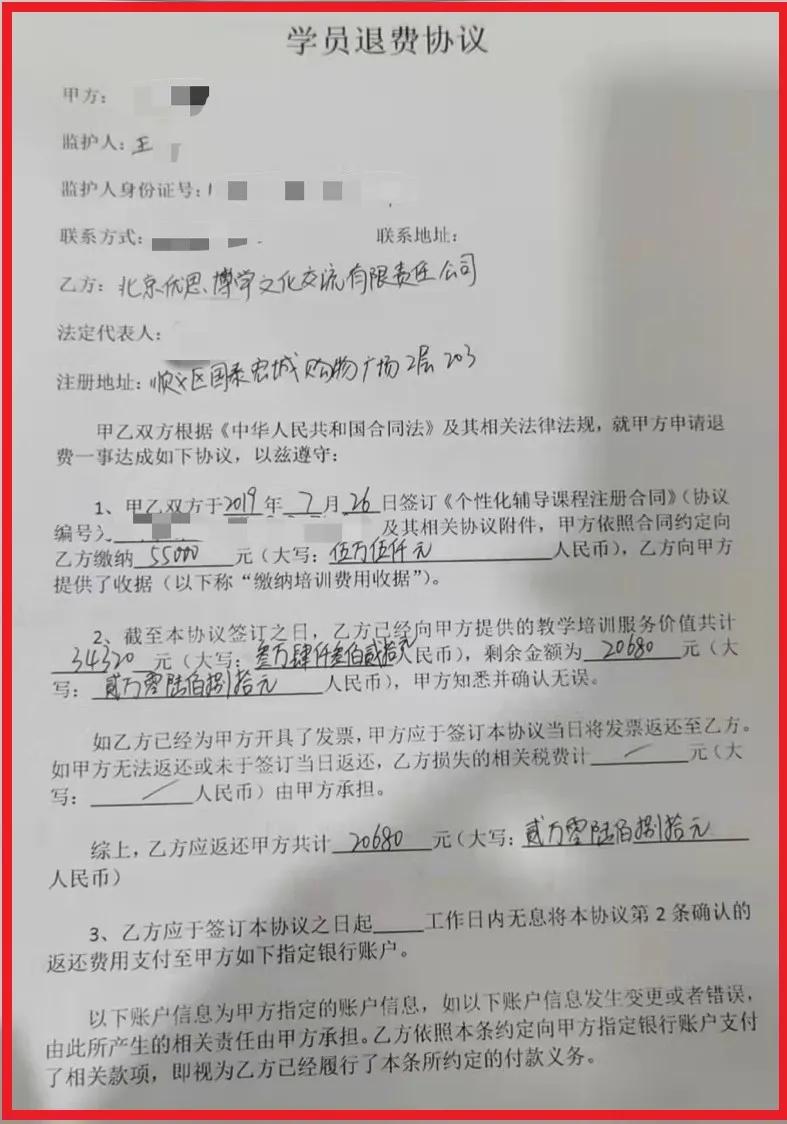 学员退费协议
甲方：
监护人：王
监护人身份证号：
联系方式： 联系地址：
乙方：北京优思博学文化交流有限责任公司
法定代表人：
注册地址：顺义区国泰宏城购物广场2层203
甲乙双方根据《中华人民共和国合同法》及其相关法律法规，就甲方申请退
费一事达成如下协议，以兹遵守：
1、甲乙双方于2019年7月26日签订《个性化辅导课程注册合同》（协议
编号）及其相关协议附件，甲方依照合同约定向
乙方缴纳55000元（大写：伍万伍仟元人民币），乙方向甲方
提供了收据（以下称“缴纳培训费用收据”）。
2、截至本协议签订之日，乙方已经向甲方提供的教学培训服务价值共计
34320元（大写：叁万肆仟叁佰贰拾元人民币），剩余金额为20680元（大
写：贰万零陆佰捌拾元人民币），甲方知悉并确认无误。
如乙方已经为甲方开具了发票，甲方应于签订本协议当日将发票返还至乙方。
如甲方无法返还或未于签订当日返还，乙方损失的相关税费计/元（大
写：/人民币）由甲方承担。
综上，乙方应返还甲方共计20680元（大写：贰万零陆佰捌拾元
人民币）
3、乙方应于签订本协议之日起____工作日内无息将本协议第2条确认的
返还费用支付至甲方如下指定银行账户。
以下账户信息为甲方指定的账户信息，如以下账户信息发生变更或者错误，
由此所产生的相关责任由甲方承担。乙方依照本条约定向甲方指定银行账户支付
了相关款项，即视为乙方已经履行了本条所约定的付款义务。